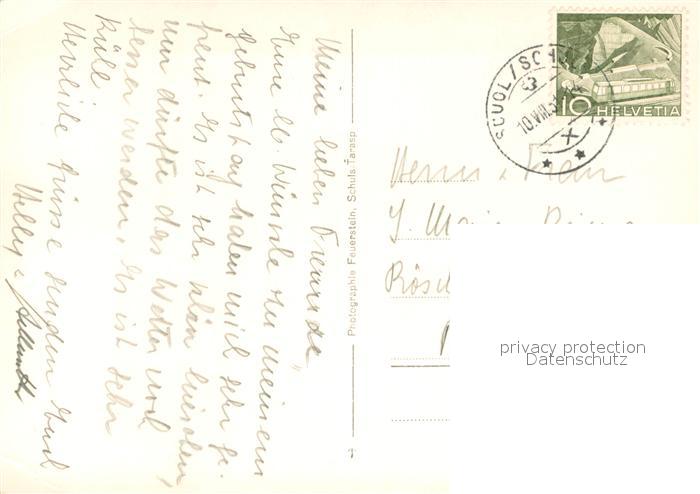 Meine lieben Freunde,
Eure lb. Wünsche zu meinem
Geburtstag haben mich sehr ge-
freut. Es ist sehr schön hier oben,
nur dürfte das Wetter noch
besser werden. Es ist sehr
kühl.
Herzliche Grüsse senden Euch
Willy &
Photographie Feuerstein, Schuls-Tarasp
SCUOL/SCHULS
10.VIII.
X
10 HELVETIA
Herrn & Frau
privacy protection
Datenschutz